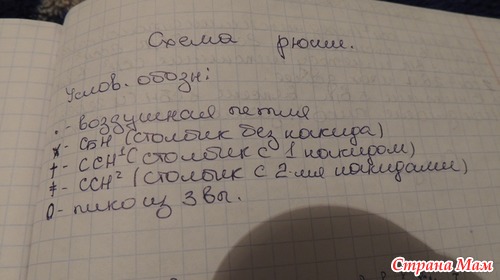 Схема рюши.
Услов. обозн:
. - воздушная петля
х - СБН (столбик без накида)
† - ССН¹ (столбик с 1 накидом)
‡ - ССН² (столбик с 2-мя накидами)
0 - пико из 3 вп.
Страна Мам